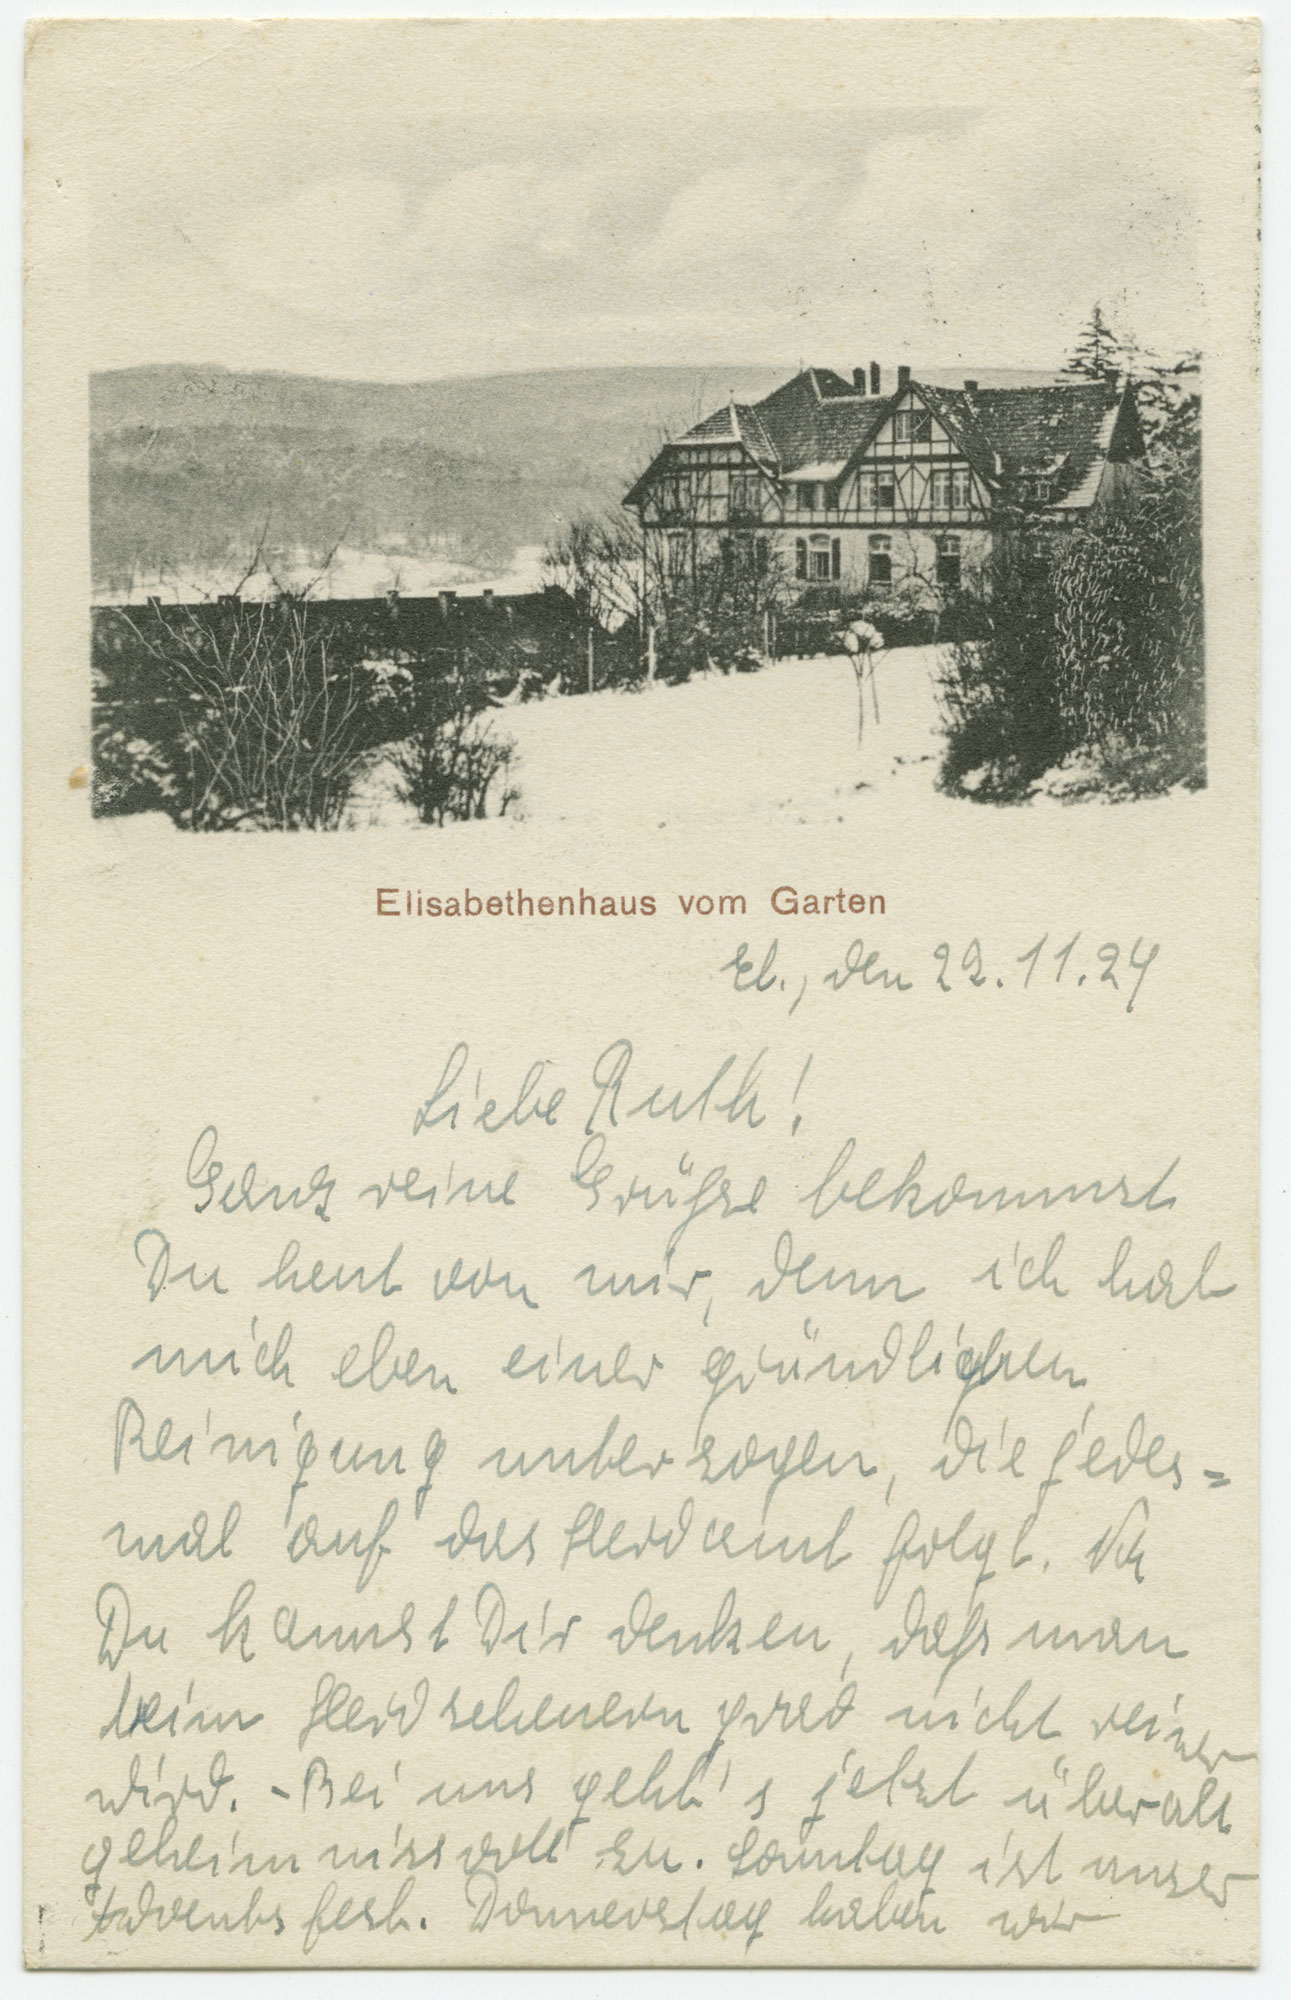 Elisabethenhaus vom Garten
El., den 22.11.24
Liebe Ruth!
Ganz reine Grüße bekommst
Du heut von mir, denn ich hab
mich eben einer gründlichen
Reinigung unterzogen, die jedes=
mal auf das Herdamt folgt. Na
Du kannst Dir denken, daß man
beim Herdscheuern grad nicht reiner
wird. - Bei uns geht's jetzt überall
geheimnisvoll zu. Sonntag ist unser
Adventsfest. Donnerstag haben wir